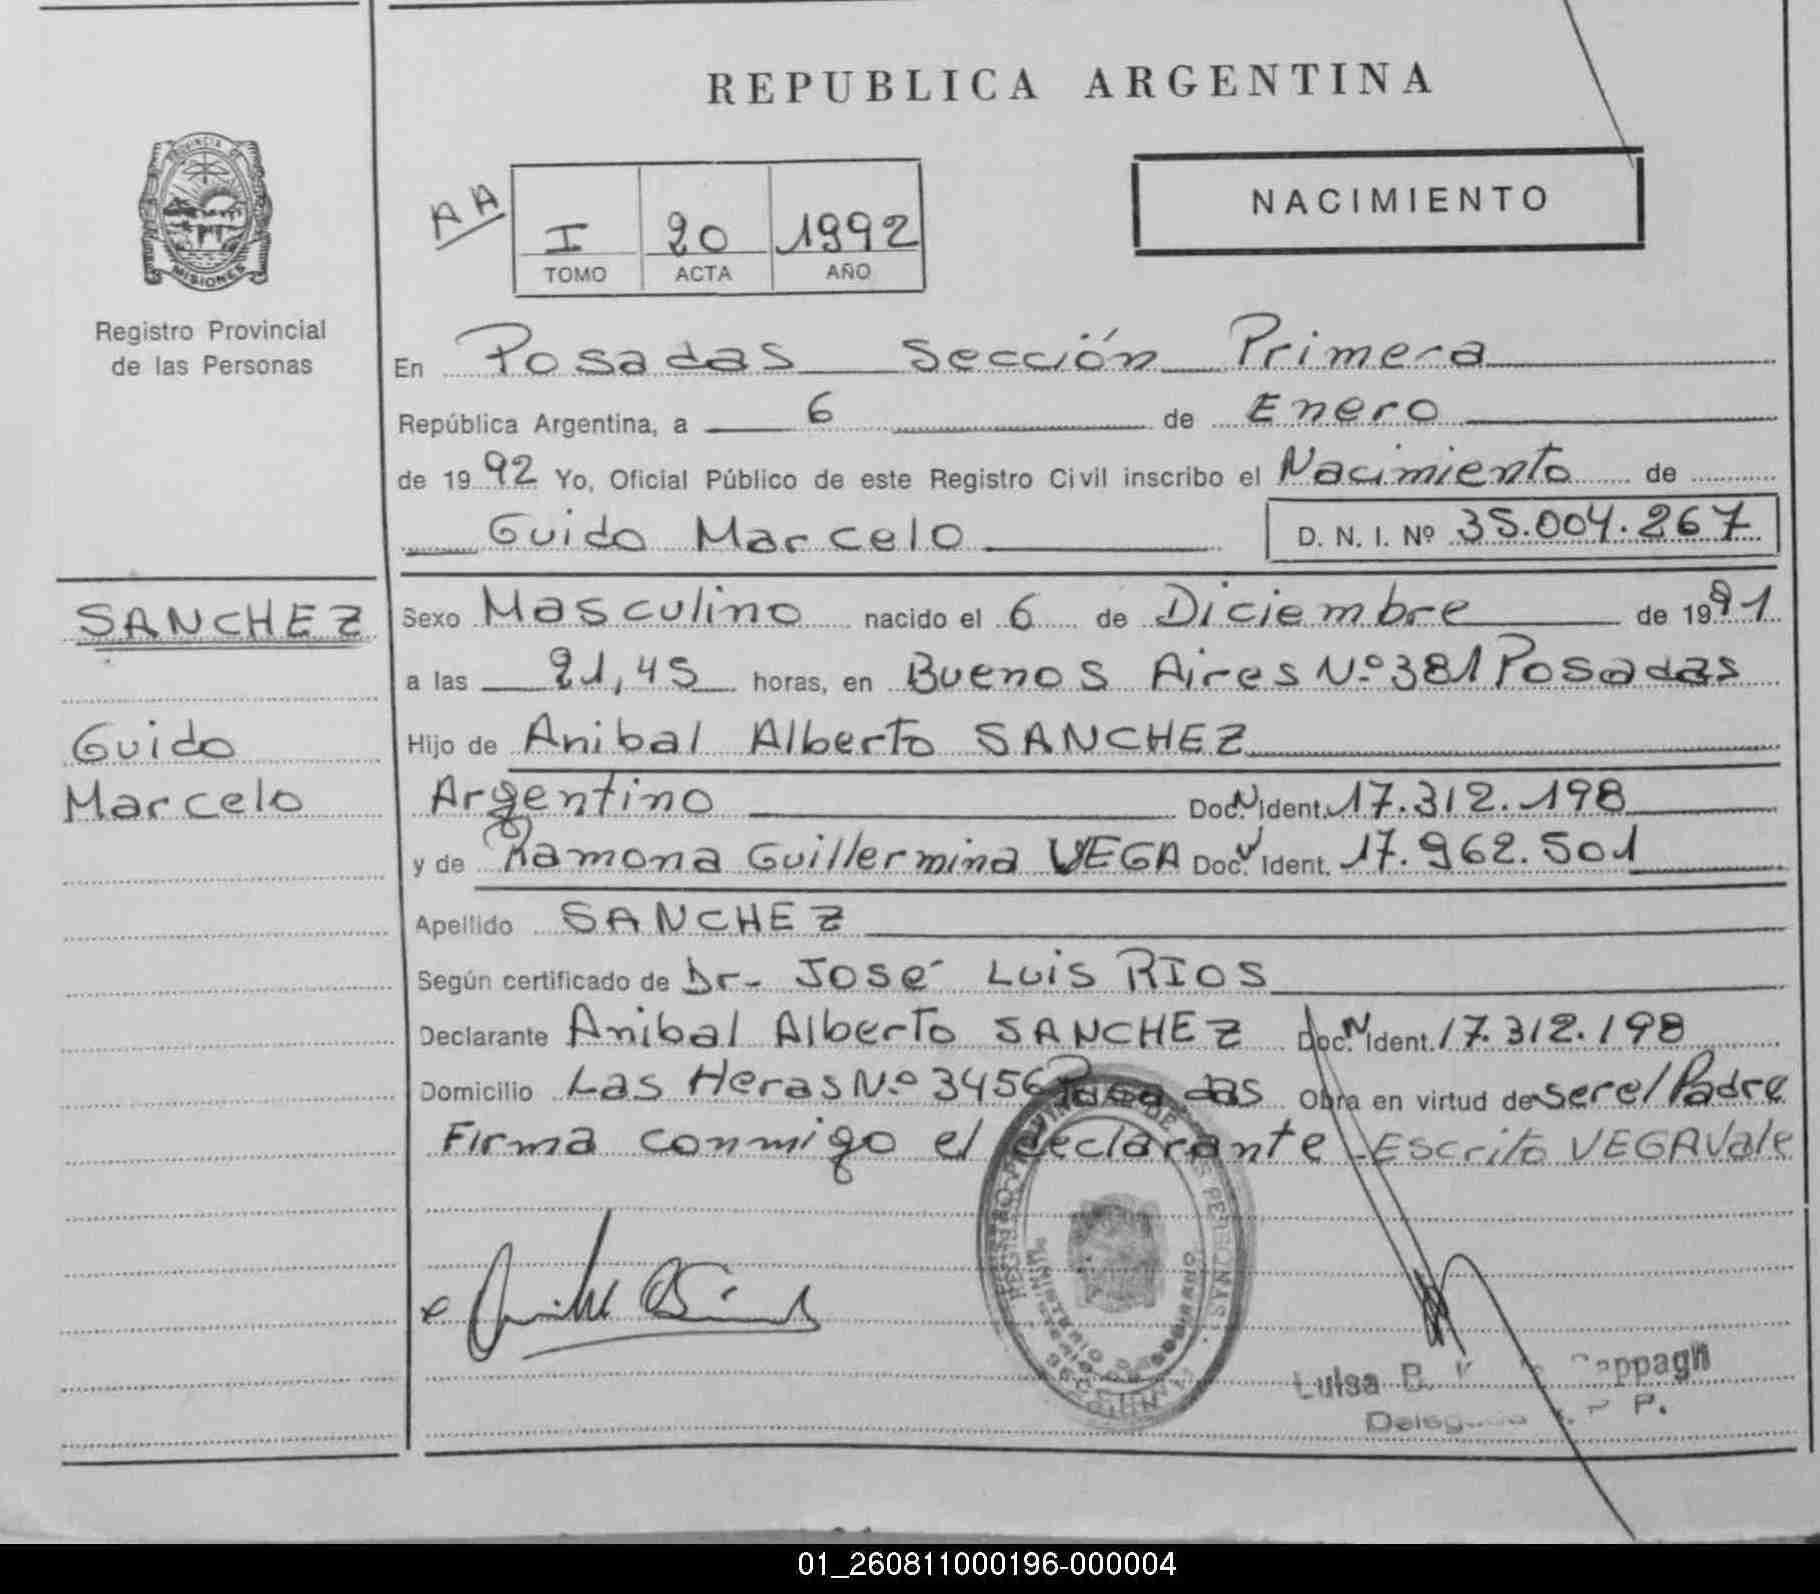 REPUBLICA ARGENTINA
PROVINCIA DE
MISIONES
Registro Provincial
de las Personas
AA
I 20 1992
TOMO ACTA AÑO
NACIMIENTO
En Posadas Sección Primera
República Argentina, a 6 de Enero
de 1992 Yo, Oficial Público de este Registro Civil inscribo el Nacimiento de
Guido Marcelo D. N. I. Nº 35.004.267
SANCHEZ
Guido
Marcelo
Sexo Masculino nacido el 6 de Diciembre de 1991
a las 21,45 horas, en Buenos Aires Nº 381 Posadas
Hijo de Anibal Alberto SANCHEZ
Argentino Doc. N Ident. 17.312.198
y de Ramona Guillermina VEGA Doc. N Ident. 17.962.501
Apellido SANCHEZ
Según certificado de Dr. José Luis RIOS
Declarante Anibal Alberto SANCHEZ Doc. N Ident. 17.312.198
Domicilio Las Heras Nº 3456 Posadas Obra en virtud de ser el Padre
Firma conmigo el declarante - Escrito VEGA Vale
REGISTRO PROVINCIAL DE LAS PERSONAS
MINISTERIO DE GOBIERNO
Luisa B.
01_260811000196-000004